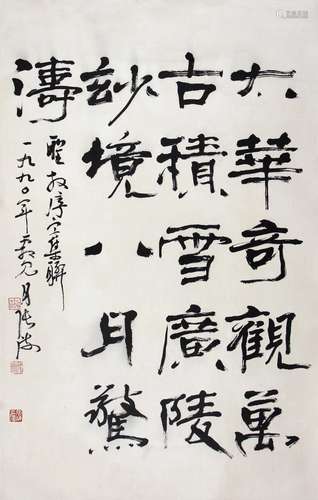 太華奇觀萬
古積雪廣陵
妙境八月驚
濤
聖教序字集聯
一九九〇年 月張海